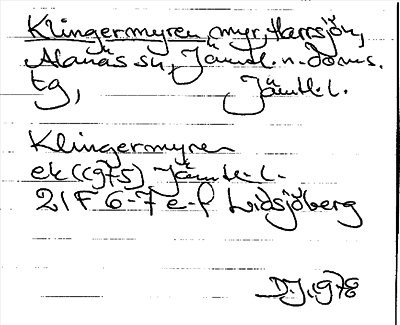 Klingermyren, myr, Harrsjön,
Alanäs sn, Jämtl. n. doms.
tg, Jämtl. l.
Klingermyren
ek (1975) Jämtl. l.
21F 6-7 e-f Lidsjöberg
D.J. 1978